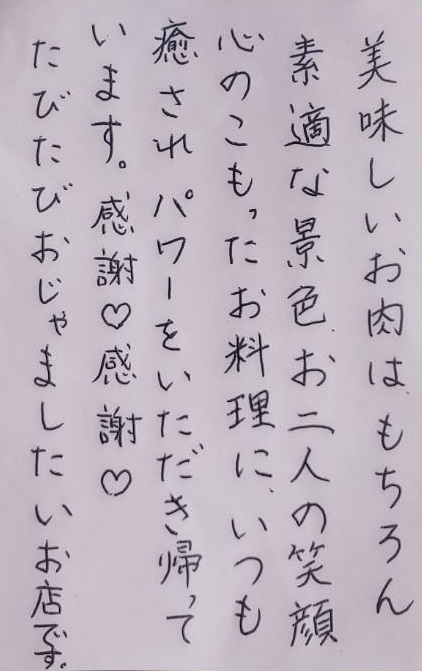 美味しいお肉はもちろん
素適な景色、お二人の笑顔
心のこもったお料理に、いつも
癒されパワーをいただき帰って
います。感謝♡感謝♡
たびたびおじゃましたいお店です。